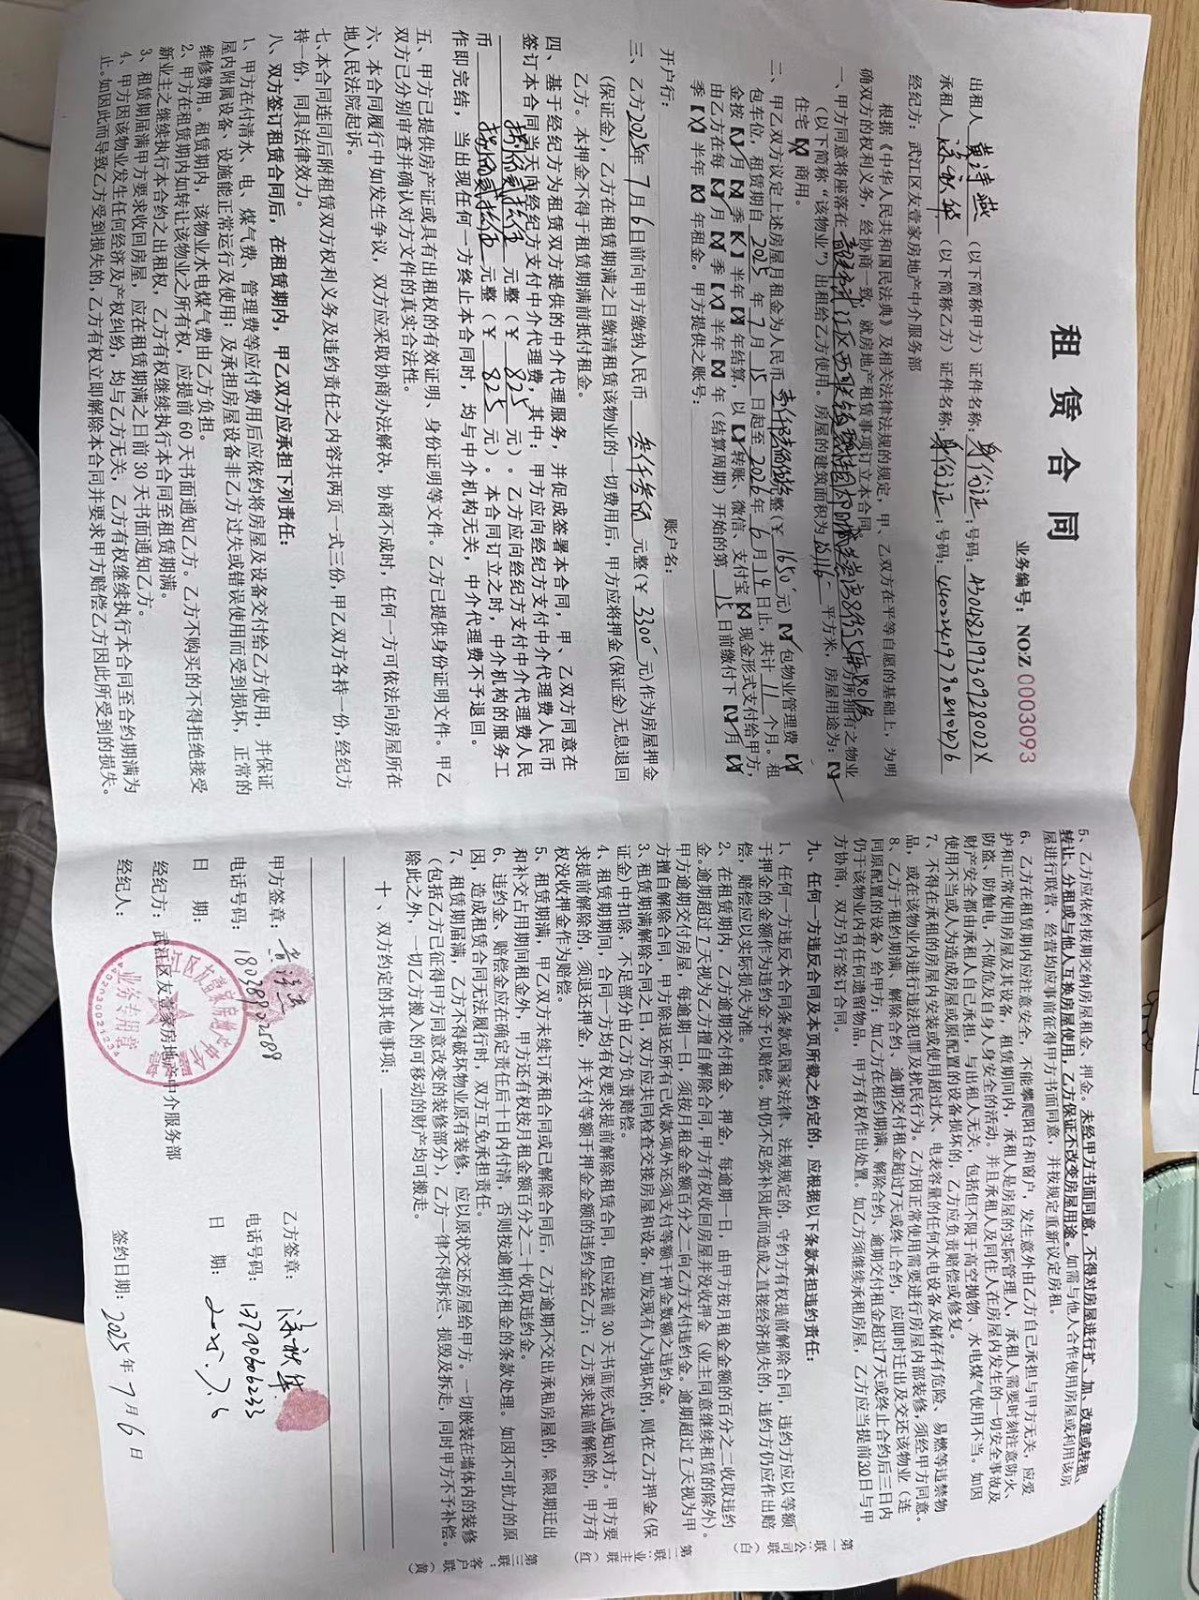 租赁合同
业务编号：NO:Z 0003093
出租人 （以下简称甲方）证件名称：身份证；号码：
承租人 （以下简称乙方）证件名称：身份证；号码：
经纪方：武江区友壹家房地产中介服务部
根据《中华人民共和国民法典》及相关法律法规的规定，甲、乙双方在平等自愿的基础上，为明
确双方的权利义务，经协商一致，就房地产租赁事项订立本合同。
一、甲方同意将座落在 房所拥有之物业
（以下简称“该物业”）出租给乙方使用。房屋的建筑面积为 平方米，房屋用途为：
住宅 商用。
二、甲乙双方议定上述房屋月租金为人民币 整（￥ 1650 元） 包物业管理费
包车位，租赁期自 2025 年 7 月 15 日起至 2026 年 6 月 14 日止，共计 11 个月。租
金按 月 季 半年 年结算，以 转账、微信、支付宝 现金形式支付给甲方，
由乙方在每 月 季 半年 年（结算周期）开始的第 15 日前缴付下 月
季 半年 年租金。甲方提供之账号：
开户行： 账户名：
三、乙方2025年 7 月 6 日前向甲方缴纳人民币 叁仟叁佰 元整（￥ 3300 元）作为房屋押金
（保证金），乙方在租赁期满之日缴清租赁该物业的一切费用后，甲方应将押金（保证金）无息退回
乙方。本押金不得于租赁期满前抵付租金。
四、基于经纪方为租赁双方提供的中介代理服务，并促成签署本合同，甲、乙双方同意在
签订本合同当天向经纪方支付中介代理费，其中：甲方应向经纪方支付中介代理费人民币
捌佰贰拾伍 元整（￥ 825 元）。乙方应向经纪方支付中介代理费人民
币 捌佰贰拾伍 元整（￥ 825 元）。本合同订立之时，中介机构的服务工
作即完结，当出现任何一方终止本合同时，均与中介机构无关，中介代理费不予退回。
五、甲方已提供房产证或具有出租权的有效证明、身份证明等文件。乙方已提供身份证明文件。甲乙
双方已分别审查并确认对方文件的真实合法性。
六、本合同履行中如发生争议，双方应采取协商办法解决，协商不成时，任何一方可依法向房屋所在
地人民法院起诉。
七、本合同连同后附租赁双方权利义务及违约责任之内容共两页一式三份，甲乙双方各持一份，经纪方
持一份，同具法律效力。
八、双方签订租赁合同后，在租赁期内，甲乙双方应承担下列责任：
1、甲方在付清水、电、煤气费、管理费等应付费用后应依约将房屋及设备交付给乙方使用，并保证
屋内附属设备、设施能正常运行及使用；及承担房屋设备非乙方过失或错误使用而受到损坏，正常的
维修费用。租赁期内，该物业水电煤气费由乙方负担。
2、甲方在租赁期内如转让该物业之所有权，应提前 60 天书面通知乙方。乙方不购买的不得拒绝接受
新业主之继续执行本合约之出租权，乙方有权继续执行本合同至租赁期满。
3、租赁期届满甲方要求收回房屋，应在租赁期满之日前 30 天书面通知乙方。
4、甲方因该物业发生任何经济及产权纠纷，均与乙方无关，乙方有权继续执行本合同至合约期满为
止。如因此而导致乙方受到损失的，乙方有权立即解除本合同并要求甲方赔偿乙方因此所受到的损失。
5、乙方应依约按期交纳房屋租金、押金。未经甲方书面同意，不得对房屋进行扩、加、改建或转租、
转让、分租或与他人互换房屋使用，乙方保证不改变房屋用途。如需与他人合作使用房屋或利用该房
屋进行联营、经营均应事前征得甲方书面同意，并按规定重新议定房租。
6、乙方在租赁期内应注意安全，不能攀爬阳台和窗户，发生意外由乙方自己承担与甲方无关，应爱
护和正常使用房屋及其设备，租赁期间内，承租人是房屋的实际管理人，承租人需要时刻注意防火、
防盗、防触电，不做危及自身人身安全的活动，并且承租人及同住人在房屋内发生的一切安全事故及
财产安全都由承租人自己承担，与出租人无关，包括但不限于高空抛物、水电煤气使用不当。如因
使用不当或人为造成房屋或原配置的设备损坏的，乙方应负责赔偿或修复。
7、不得在承租的房屋内安装或使用超过水、电表容量的任何水电设备及储存有危险、易燃等违禁物
品，或在该物业内进行违法犯罪及扰民行为。乙方因正常使用需要进行房屋内部装修，须经甲方同意。
8、乙方于租约期满、解除合约、逾期交付租金超过7天或终止合约，应即时迁出及交还该物业（连
同原配置的设备）给甲方；如乙方在租约期满、解除合约、逾期交付租金超过7天或终止合约后三日内
仍于该物业内有任何遗留物品，甲方有权作出处置。如乙方须继续承租房屋，乙方应当提前30日与甲
方协商，双方另行签订合同。
九、任何一方违反合同及本页所载之约定的，应根据以下条款承担违约责任：
1、任何一方违反本合同条款或国家法律、法规规定的，守约方有权提前解除合同，违约方应以等额
于押金的金额作为违约金予以赔偿。如仍不足弥补因此而造成之直接经济损失的，违约方仍应作出赔
偿，赔偿应以实际损失为准。
2、在租赁期内，乙方逾期交付租金、押金，每逾期一日，由甲方按月租金金额的百分之二收取违约
金。逾期超过 7 天视为乙方擅自解除合同，甲方有权收回房屋并没收押金（业主同意继续租赁的除外）。
甲方逾期交付房屋，每逾期一日，须按月租金金额百分之二向乙方支付违约金。逾期超过 7 天视为甲
方擅自解除合同，甲方除退还所有已收款项外还须支付等额于押金数额之违约金。
3、租赁期满解除合同之日，双方应共同检查交接房屋和设备，如发现有人为损坏的，则在乙方押金（保
证金）中扣除，不足部分由乙方负责赔偿。
4、租赁期期间，合同一方均有权要求提前解除租赁合同，但应提前 30 天书面形式通知对方。甲方要
求提前解除的，须退还押金，并支付等额于押金金额的违约金给乙方；乙方要求提前解除的，甲方有
权没收押金作为赔偿。
5、租赁期满，甲乙双方未续订承租合同或已解除合同后，乙方逾期不交出承租房屋的，除限期迁出
和补交占用期间租金外，甲方还有权按月租金额百分之二十收取违约金。
6、违约金、赔偿金应在确定责任后十日内付清，否则按逾期付租金的条款处理。如因不可抗力的原
因，造成租赁合同无法履行时，双方互免承担责任。
7、租赁期届满，乙方不得破坏物业原有装修，应以原状交还房屋给甲方。一切嵌装在墙体内的装修
（包括乙方已征得甲方同意改变的装修部分），乙方一律不得拆烂、损毁及拆走，同时甲方不予补偿。
除此之外，一切乙方搬入的可移动的财产均可搬走。
十、双方约定的其他事项：
甲方签章： 乙方签章：
电话号码： 电话号码：13790606233
日 期： 日 期：2025.7.6
经纪方：武江区友壹家房地产中介服务部
经纪人： 签约日期：2025 年 7 月 6 日
业务专用章
第一联：公司联（白）
第二联：业主联（红）
第三联：客户联（黄）